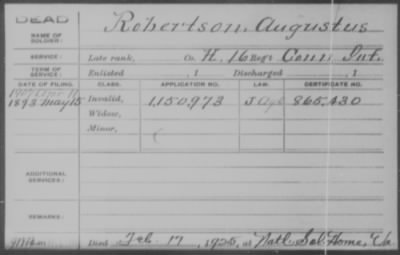 DEAD
NAME OF SOLDIER: Robertson, Augustus
SERVICE: Late rank, Co. H, 16 Reg't Conn Inf.
TERM OF SERVICE: Enlisted , 1 Discharged , 1
DATE OF FILING. CLASS. APPLICATION NO. LAW. CERTIFICATE NO.
1893 May 15 Invalid, 1,150,973 865,430
Widow,
Minor,
ADDITIONAL SERVICES:
REMARKS:
Died Feb. 17, 1925, at Natl. Sol. Home, Va